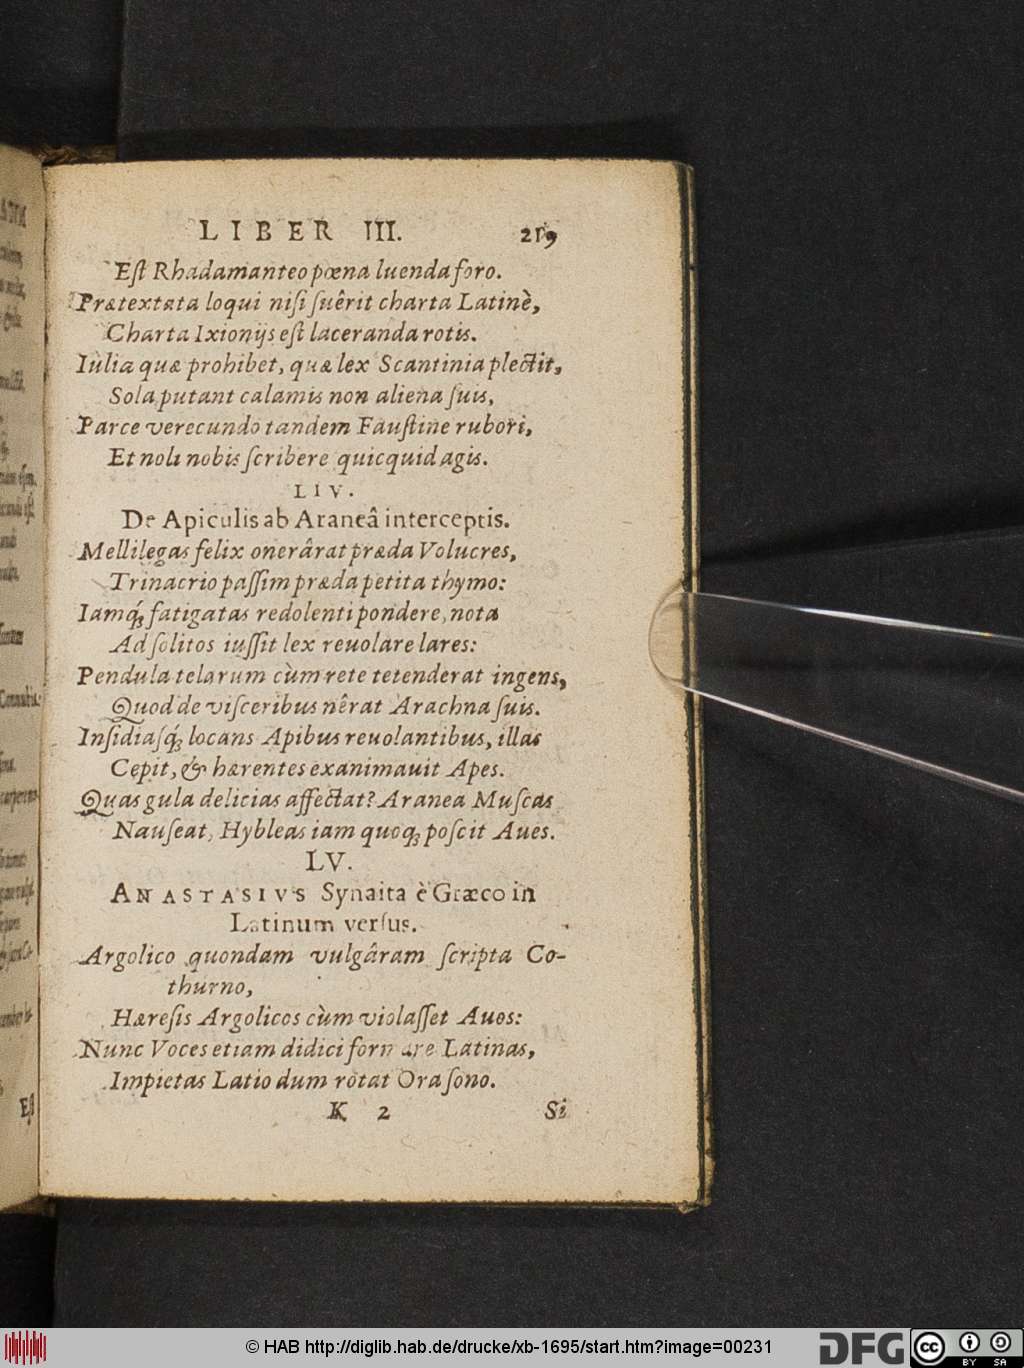 LIBER III. 219
Eſt Rhadamanteo pœna luenda foro.
Prætextata loqui niſi ſuêrit charta Latinè,
Charta Ixionijs eſt laceranda rotis.
Iulia quæ prohibet, quæ lex Scantinia plectit,
Sola putant calamis non aliena ſuis,
Parce verecundo tandem Fauſtine rubori,
Et noli nobis ſcribere quicquid agis.
LIV.
De Apiculis ab Araneâ interceptis.
Mellilegas felix onerârat præda Volucres,
Trinacrio paſſim præda petita thymo:
Iamq́; fatigatas redolenti pondere, nota
Ad ſolitos iuſſit lex reuolare lares:
Pendula telarum cùm rete tetenderat ingens,
Quod de viſceribus nêrat Arachna ſuis.
Inſidiaſq́; locans Apibus reuolantibus, illas
Cepit, & hærentes exanimauit Apes.
Quas gula delicias affectat? Aranea Muſcas
Nauſeat, Hybleas iam quoq; poſcit Aues.
LV.
ANASTASIVS Synaita è Græco in
Latinum verſus.
Argolico quondam vulgâram ſcripta Co-
thurno,
Hæreſis Argolicos cùm violaſſet Auos:
Nunc Voces etiam didici formare Latinas,
Impietas Latio dum rotat Ora ſono.
K 2 Si
Eſt
© HAB http://diglib.hab.de/drucke/xb-1695/start.htm?image=00231
DFG
cc BY SA